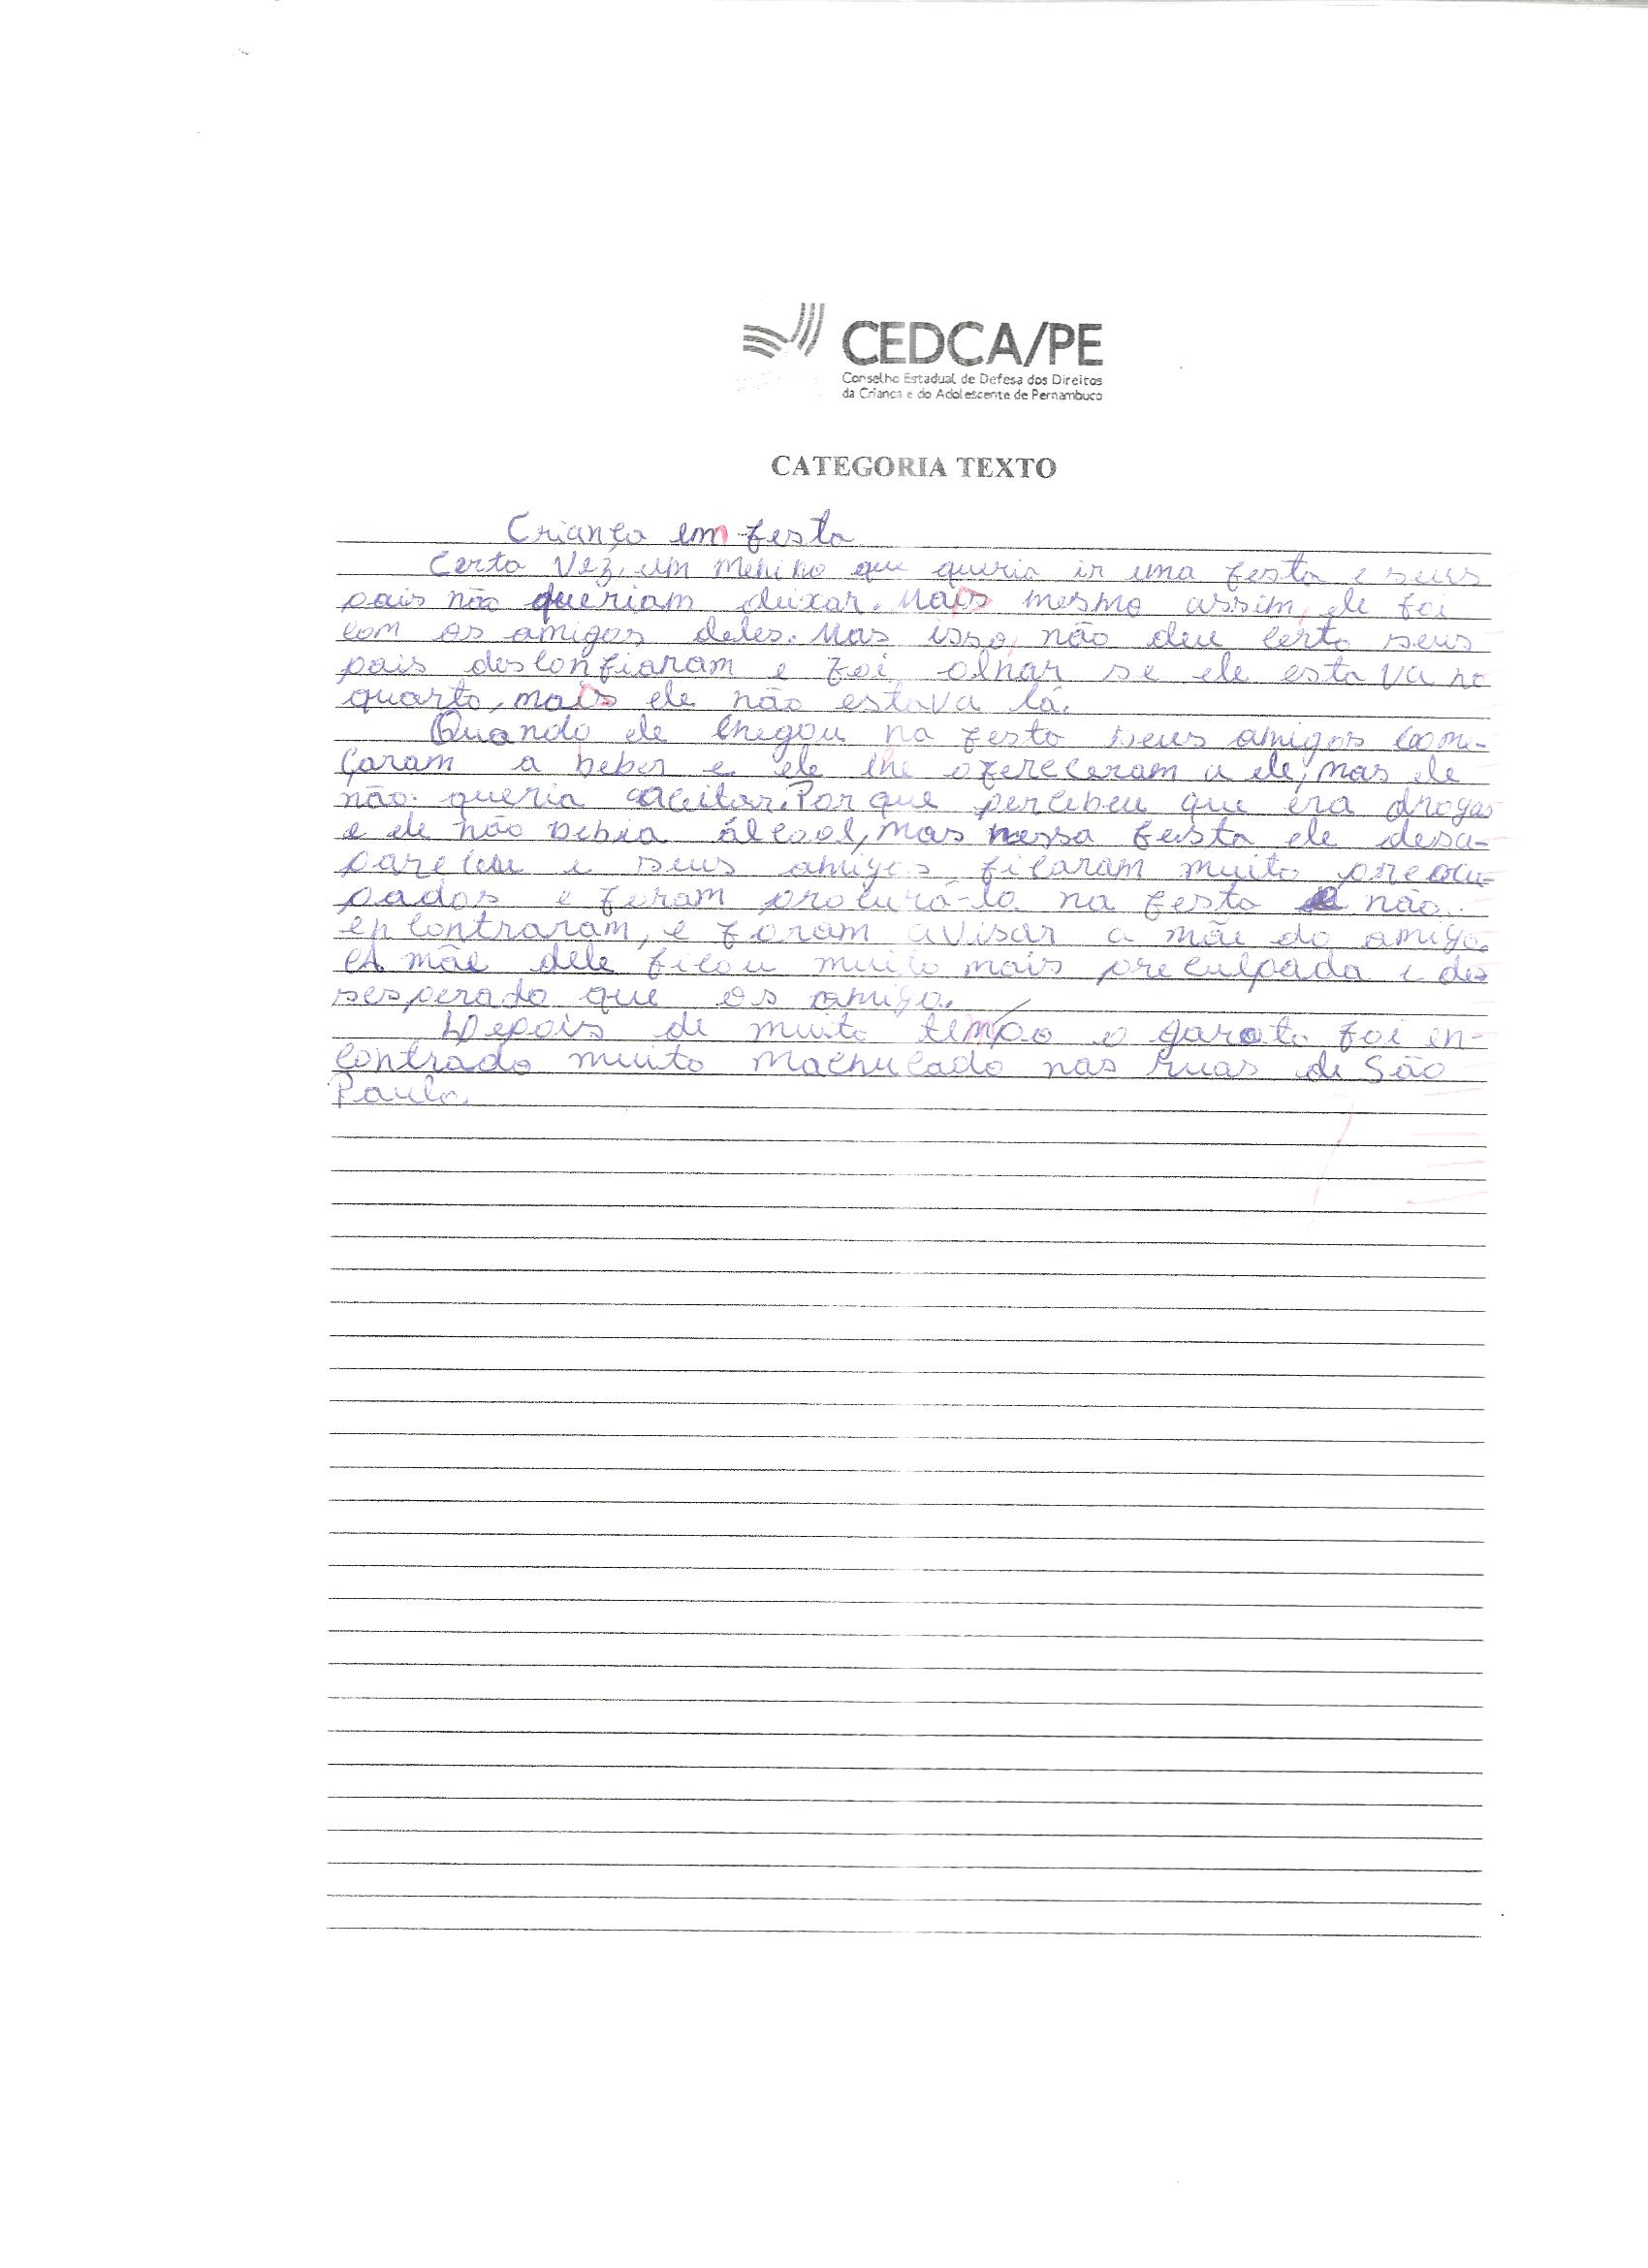 CEDCA/PE
Conselho Estadual de Defesa dos Direitos
da Criança e do Adolescente de Pernambuco
CATEGORIA TEXTO
Criança em festa
Certa vez, um menino que queria ir uma festa e seus
pais não queriam deixar. Mais mesmo assim, ele foi
com os amigos deles. Mas isso, não deu certo seus
pais desconfiaram e foi olhar se ele estava no
quarto, mais ele não estava lá.
Quando ele chegou na festa seus amigos come-
çaram a beber e ele lhe ofereceram a ele, mas ele
não queria aceitar. Por que percebeu que era drogas
e ele não bebia álcool, mas nessa festa ele desa-
pareceu e seus amigos ficaram muito preocu-
pados e foram procurá-lo na festa e não
encontraram, e foram avisar a mãe do amigo.
A mãe dele ficou muito mais preculpada e des
sesperada que os amigo.
Depois de muito tempo o garoto foi en-
contrado muito machucado nas ruas de São
Paulo.